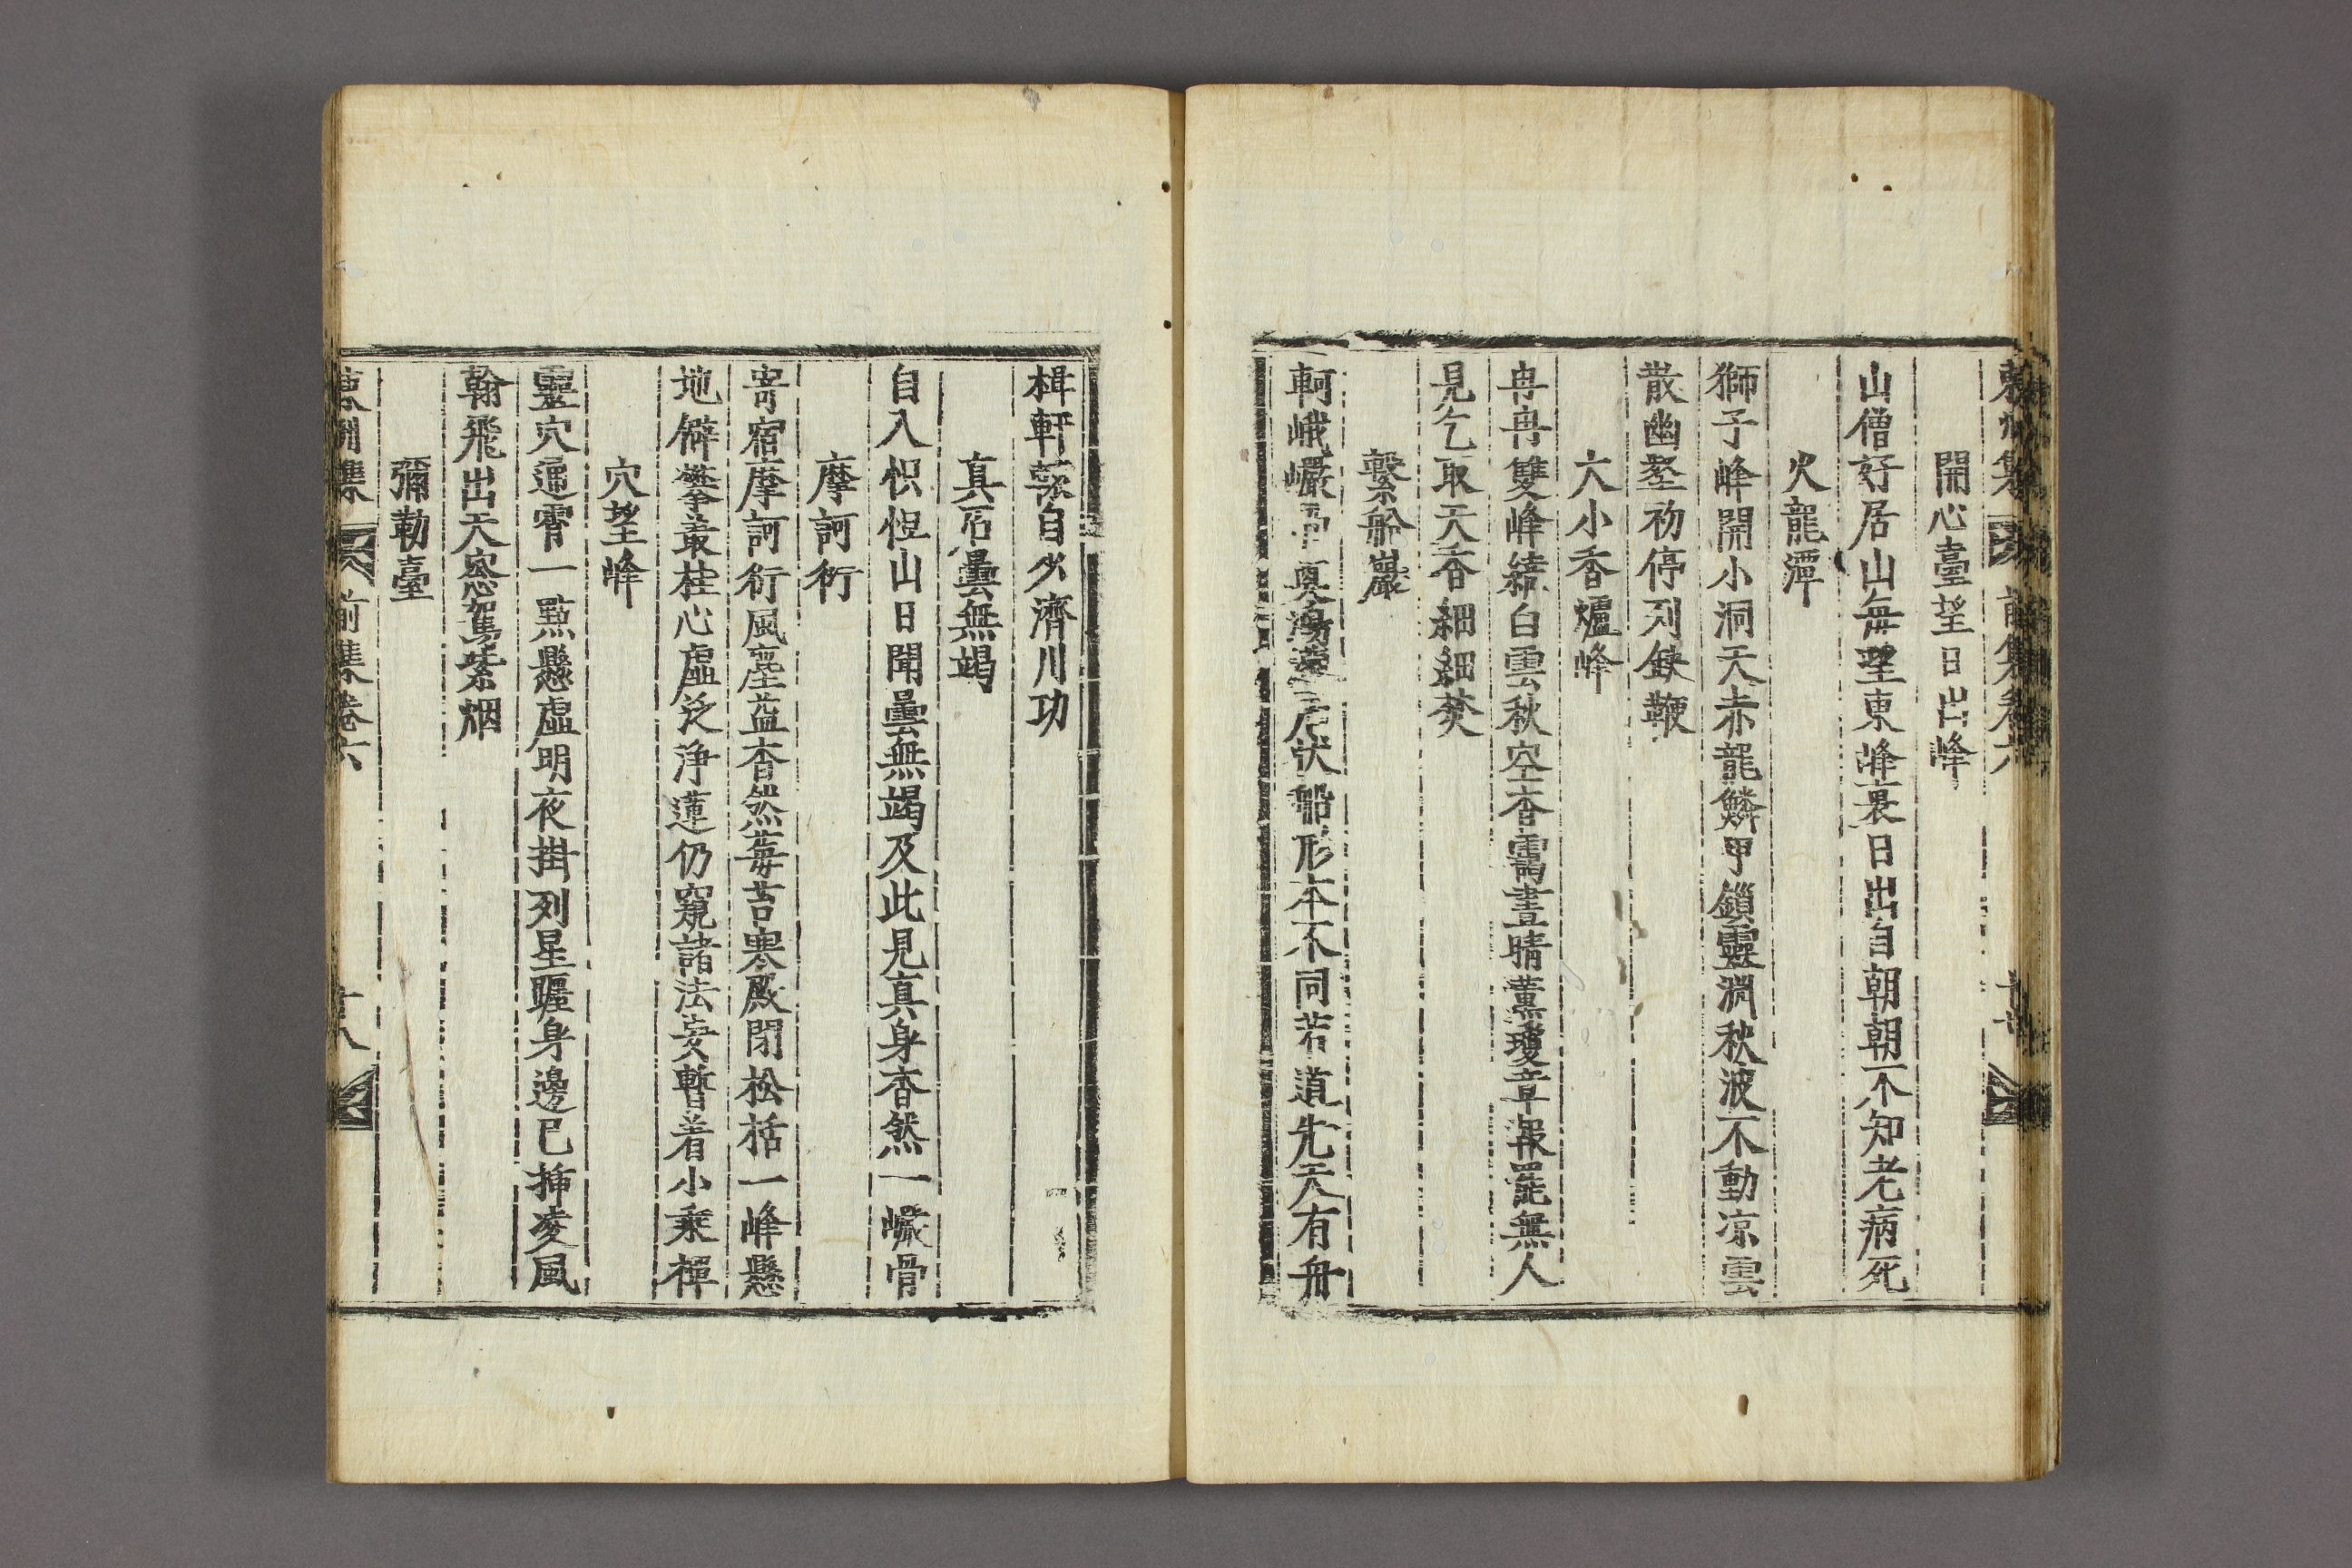 東州集 前集卷六
開心臺望日出峰
山僧好居山每望東峰裏日出自朝朝不知老病死
火龍潭
獅子峰開小洞天赤龍鱗甲鎖靈淵秋波不動凉雲
散幽壑初停列缺鞭
大小香爐峰
冉冉雙峰繞白雲秋空杳靄晝晴薰瓊章報罷無人
見乞取天香細細焚
繫船巖
軻峨巖骨奠 石狀船形本不同若道先天有舟
楫軒 自少濟川功
真石曇無竭
自入怾怛山日聞曇無竭及此見真身杳然一巖骨
摩訶衍
寄宿摩訶衍風塵益杳然莓苔寒殿閉松栝一峰懸
地僻攀叢桂心虛泛淨蓮仍窺諸法妄暫着小乘禪
穴望峰
靈穴逼霄一點懸虛明夜掛列星躔身邊已挿凌風
翰飛出天窓駕紫烟
彌勒臺
東州集 前集卷六 十八